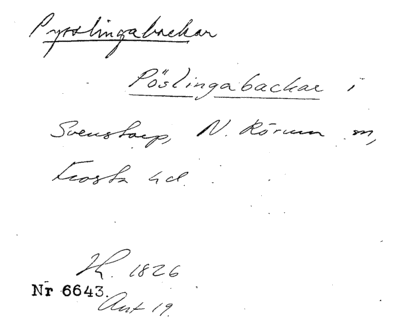 Pysslingabackar
Pöslingabackar i
Svenstorp, N. Rörum sn,
Frosta hd.
Th. 1826
Nr 6643.
Ant 19.